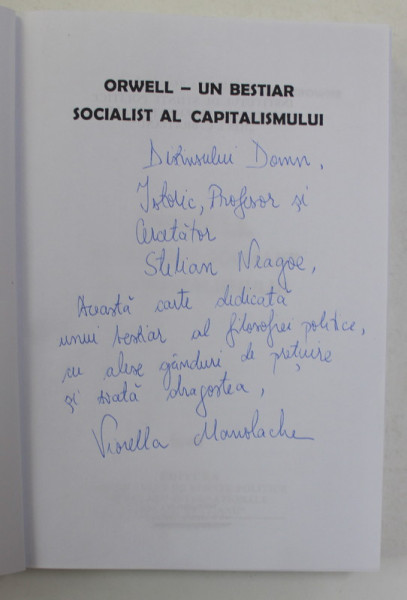 ORWELL – UN BESTIAR
SOCIALIST AL CAPITALISMULUI
Distinsului Domn,
Istoric, Profesor și
Cercetător
Stelian Neagoe,
Această carte dedicată
unui bestiar al filosofiei politice,
cu alese gânduri de prețuire
și toată dragostea,
Viorella Manolache